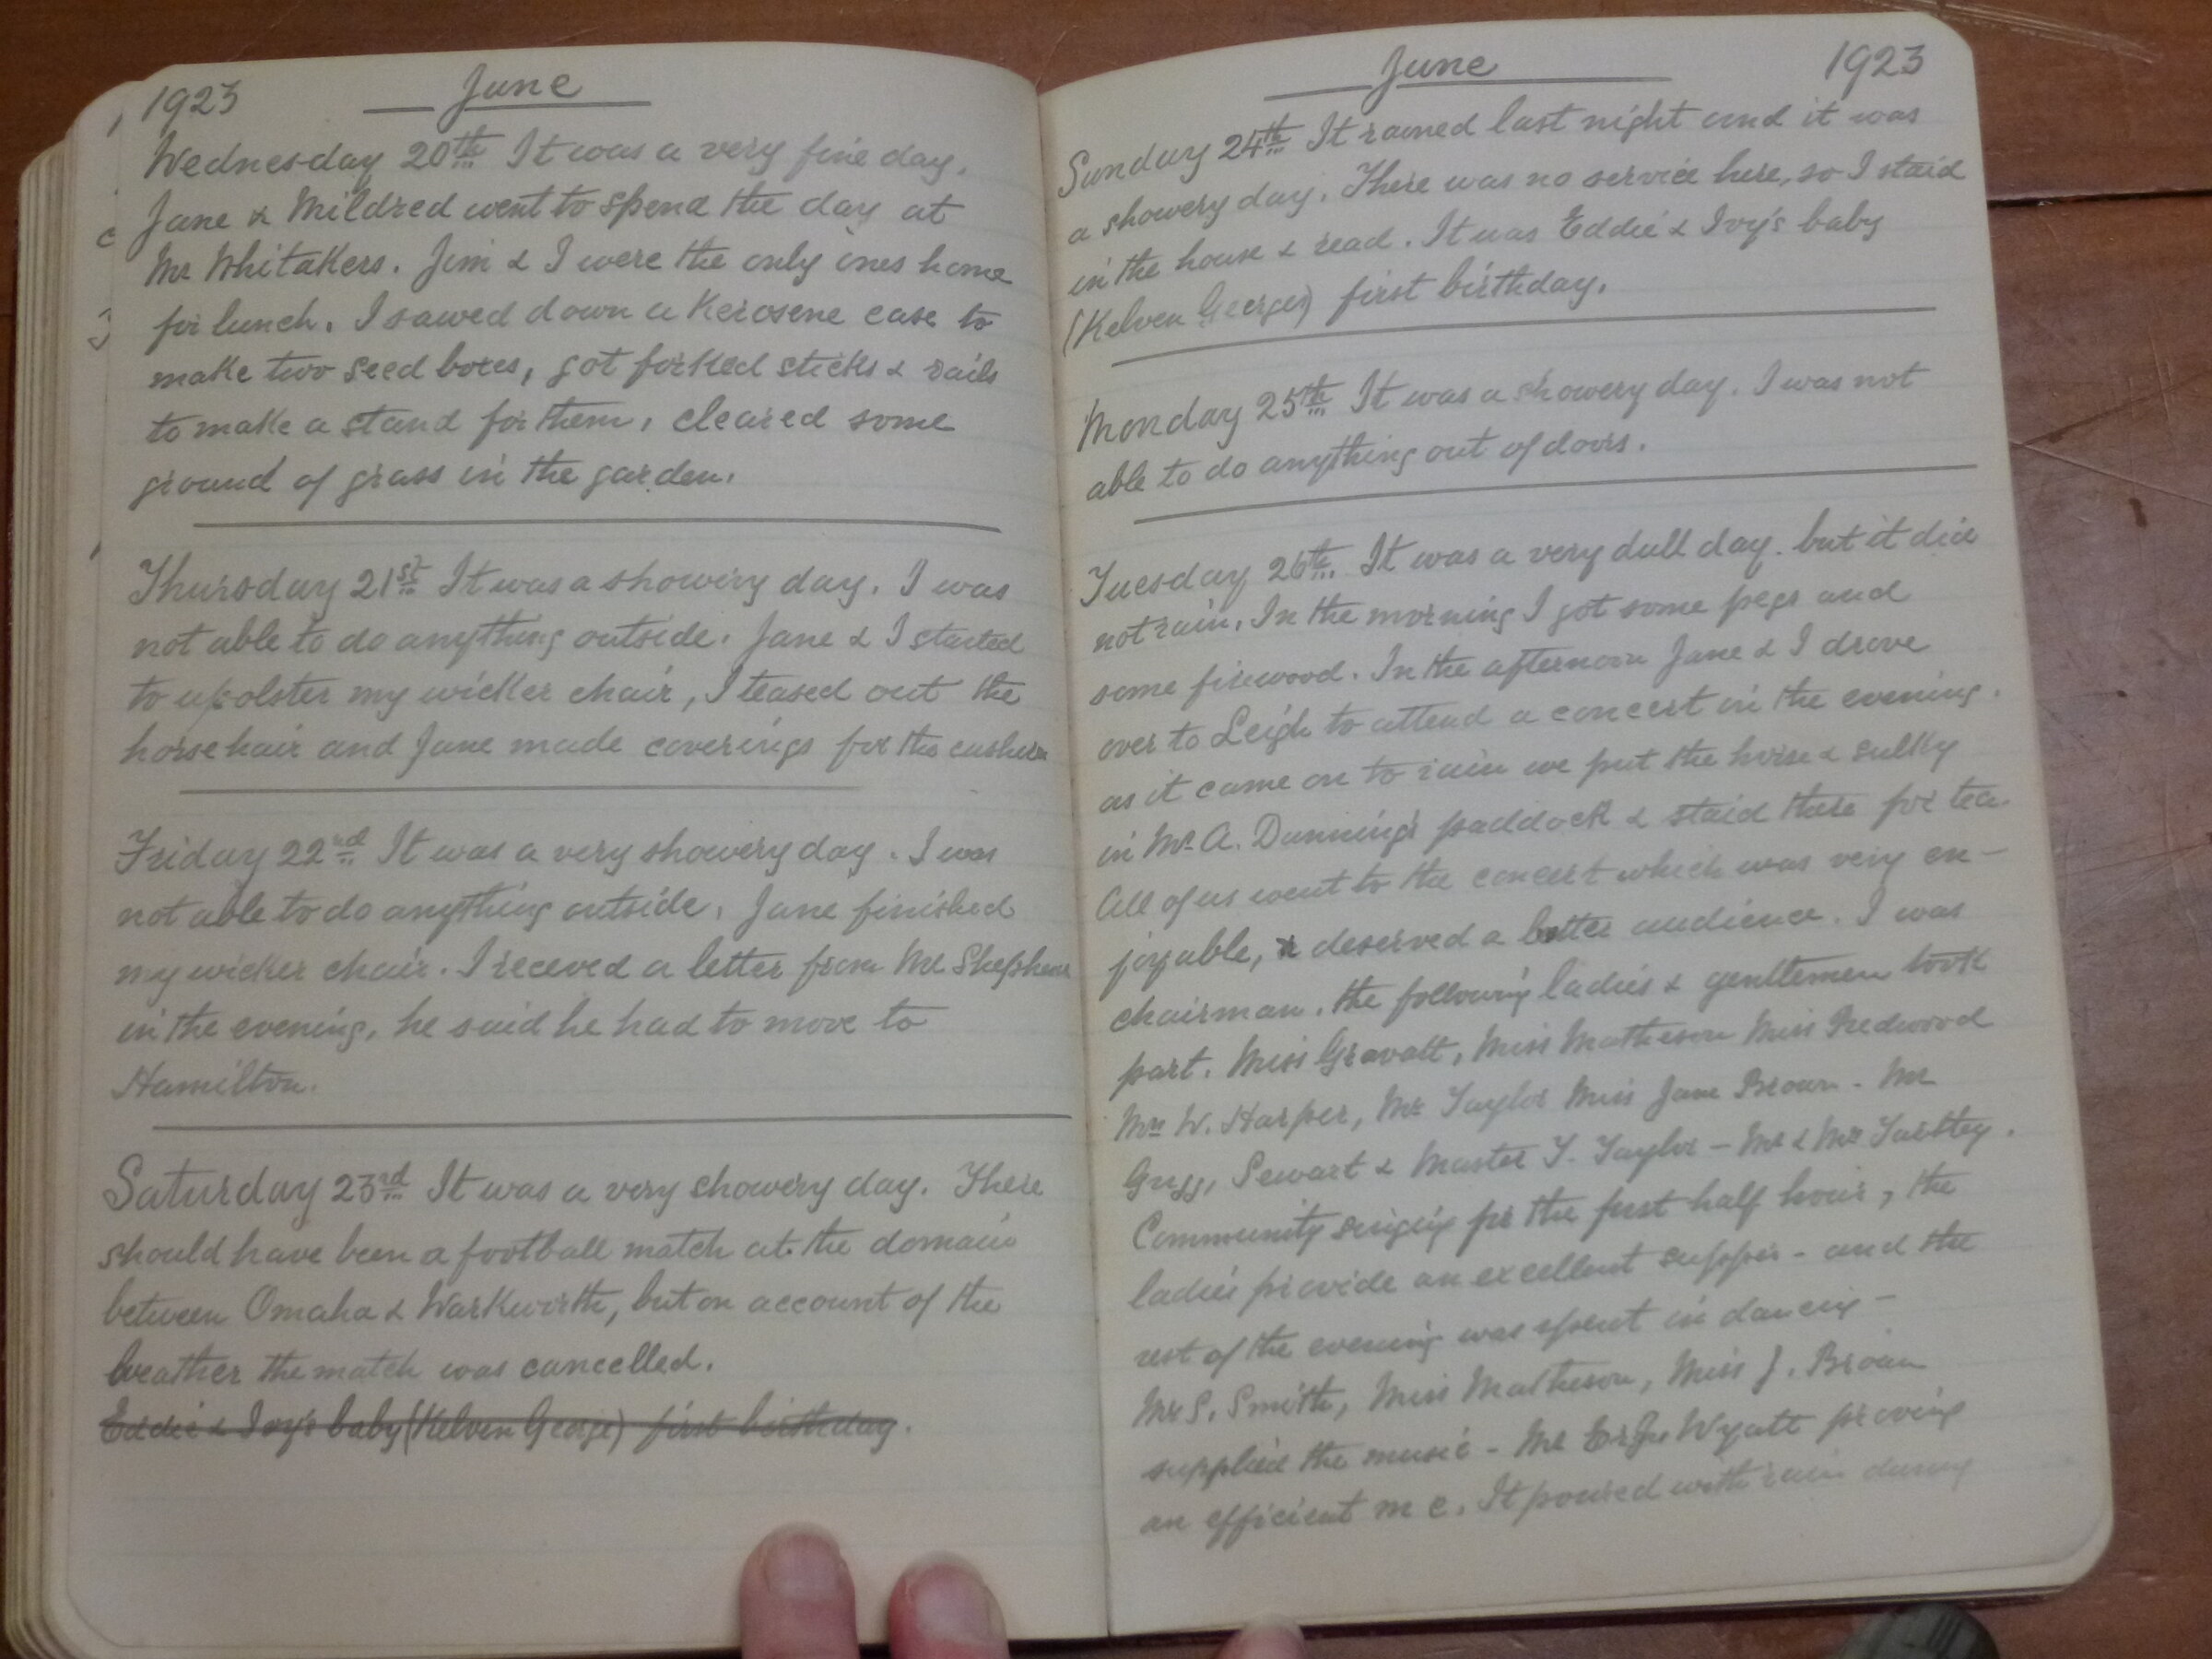 1923 June
Wednesday 20th It was a very fine day.
Jane & Mildred went to spend the day at
Mr Whitakers. Jim & I were the only ones home
for lunch. I sawed down a Kerosene case to
make two seed boxes, got forked sticks & rails
to make a stand for them, cleared some
ground of grass in the garden.
Thursday 21st It was a showery day. I was
not able to do anything outside. Jane & I started
to upolster my wicker chair, I teased out the
horsehair and Jane made coverings for the
Friday 22nd It was a very showery day. I was
not able to do anything outside. Jane finished
my wicker chair. I receved a letter from Mr
in the evening, he said he had to move to
Hamilton.
Saturday 23rd It was a very showery day. There
should have been a football match at the domain
between Omaha & Warkworth, but on account of the
weather the match was cancelled.
Eddie & Ivy's baby (Kelven George) first birthday.
June 1923
Sunday 24th It rained last night and it was
a showery day. There was no service here, so I staid
in the house & read. It was Eddie & Ivy's baby
(Kelven George) first birthday.
Monday 25th It was a showery day. I was not
able to do anything out of doors.
Tuesday 26th. It was a very dull day. but it did
not rain. In the morning I got some pegs and
some firewood. In the afternoon Jane & I drove
over to Leigh to attend a concert in the evening.
as it came on to rain we put the horse & sulky
in Mr A. Dunning's paddock & staid there for tea.
All of us went to the concert which was very en-
joyable, & deserved a better audience. I was
chairman. the following ladies & gentlemen took
part. Miss Gravatt, Miss Matheson Miss Redwood
Mrs W. Harper, Mr Taylor Miss Jane Brown - Mr
Stewart & Master T. Taylor - Mr & Mr
Community singing for the first half hour, the
ladies provide an excellent supper - and the
rest of the evening was spent in dancing -
Mr S. Smith, Miss Matheson, Miss J. Brown
supplied the music - Mr Wyatt proving
an efficient m c. It poured with rain during